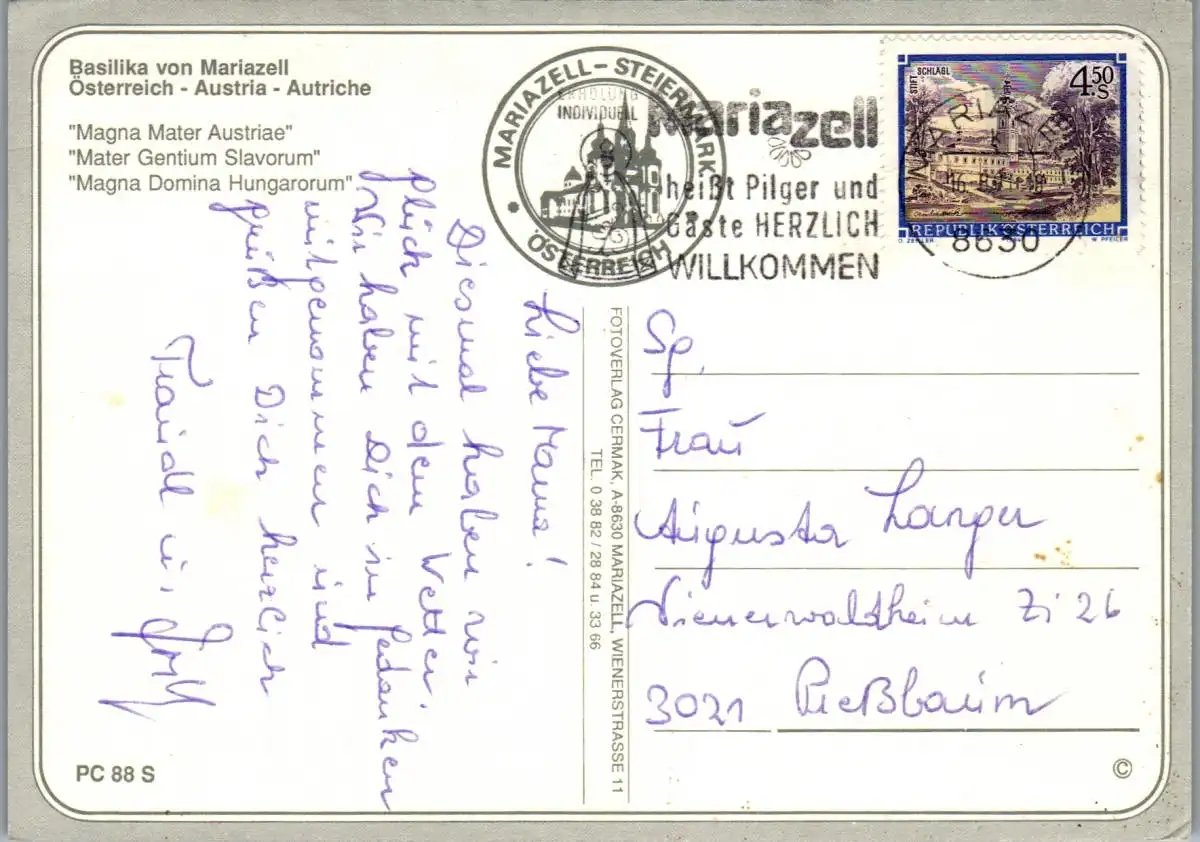 Basilika von Mariazell
Österreich - Austria - Autriche
"Magna Mater Austriae"
"Mater Gentium Slavorum"
"Magna Domina Hungarorum"
MARIAZELL - STEIERMARK
ÖSTERREICH
ERHOLUNG
INDIVIDUELL
Mariazell
heißt Pilger und
Gäste HERZLICH
WILLKOMMEN
MARIAZELL
8630
STIFT SCHLÄGL
4.50 S
REPUBLIK ÖSTERREICH
O. ZEILLER
W. PFEILER
Liebe Mama!
Diesmal haben wir
Glück mit dem Wetter.
Wir haben Dich in Gedanken
mitgenommen und
grüßen Dich herzlich
Traudl u.
FOTOVERLAG CERMAK, A-8630 MARIAZELL, WIENERSTRASSE 11
TEL. 0 38 82 / 28 84 u. 33 66
Sg.
Frau
Augusta Langer
Wienerwaldheim Zi 26
3021 Preßbaum
PC 88 S
©